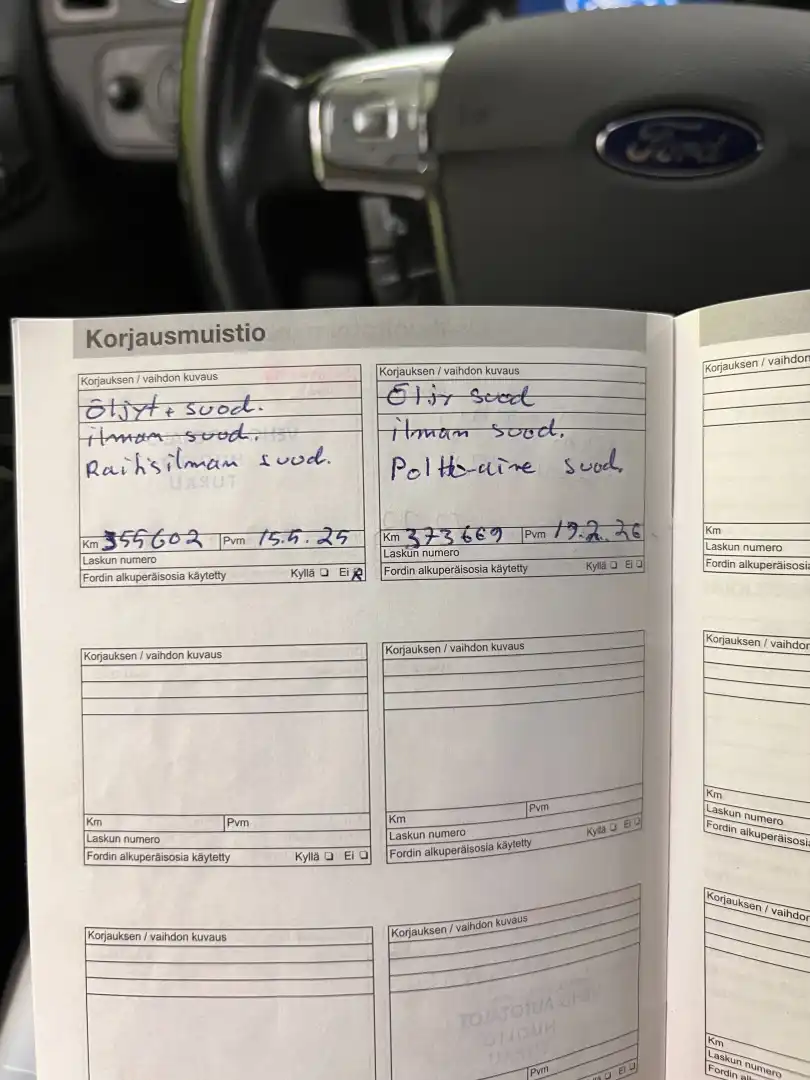 Ford
Korjausmuistio
Korjauksen / vaihdon kuvaus
Öljyt + suod.
ilman suod.
Raitisilman suod.
Km 355602 Pvm 15.5.25
Laskun numero
Fordin alkuperäisosia käytetty Kyllä Ei
Korjauksen / vaihdon kuvaus
Öljy suod
ilman suod.
Poltto-aine suod.
Km 373669 Pvm 19.2.26
Laskun numero
Fordin alkuperäisosia käytetty Kyllä Ei
Korjauksen / vaihdon
Km
Laskun numero
Fordin alkuperäisosia
Korjauksen / vaihdon kuvaus
Km Pvm
Laskun numero
Fordin alkuperäisosia käytetty Kyllä Ei
Korjauksen / vaihdon kuvaus
Km Pvm
Laskun numero
Fordin alkuperäisosia käytetty Kyllä Ei
Korjauksen / vaihdon
Km
Laskun numero
Fordin alkuperäisosia
Korjauksen / vaihdon kuvaus
Korjauksen / vaihdon kuvaus
Pvm
Ei
Korjauksen / vaihdon
Km
Laskun numero
Fordin